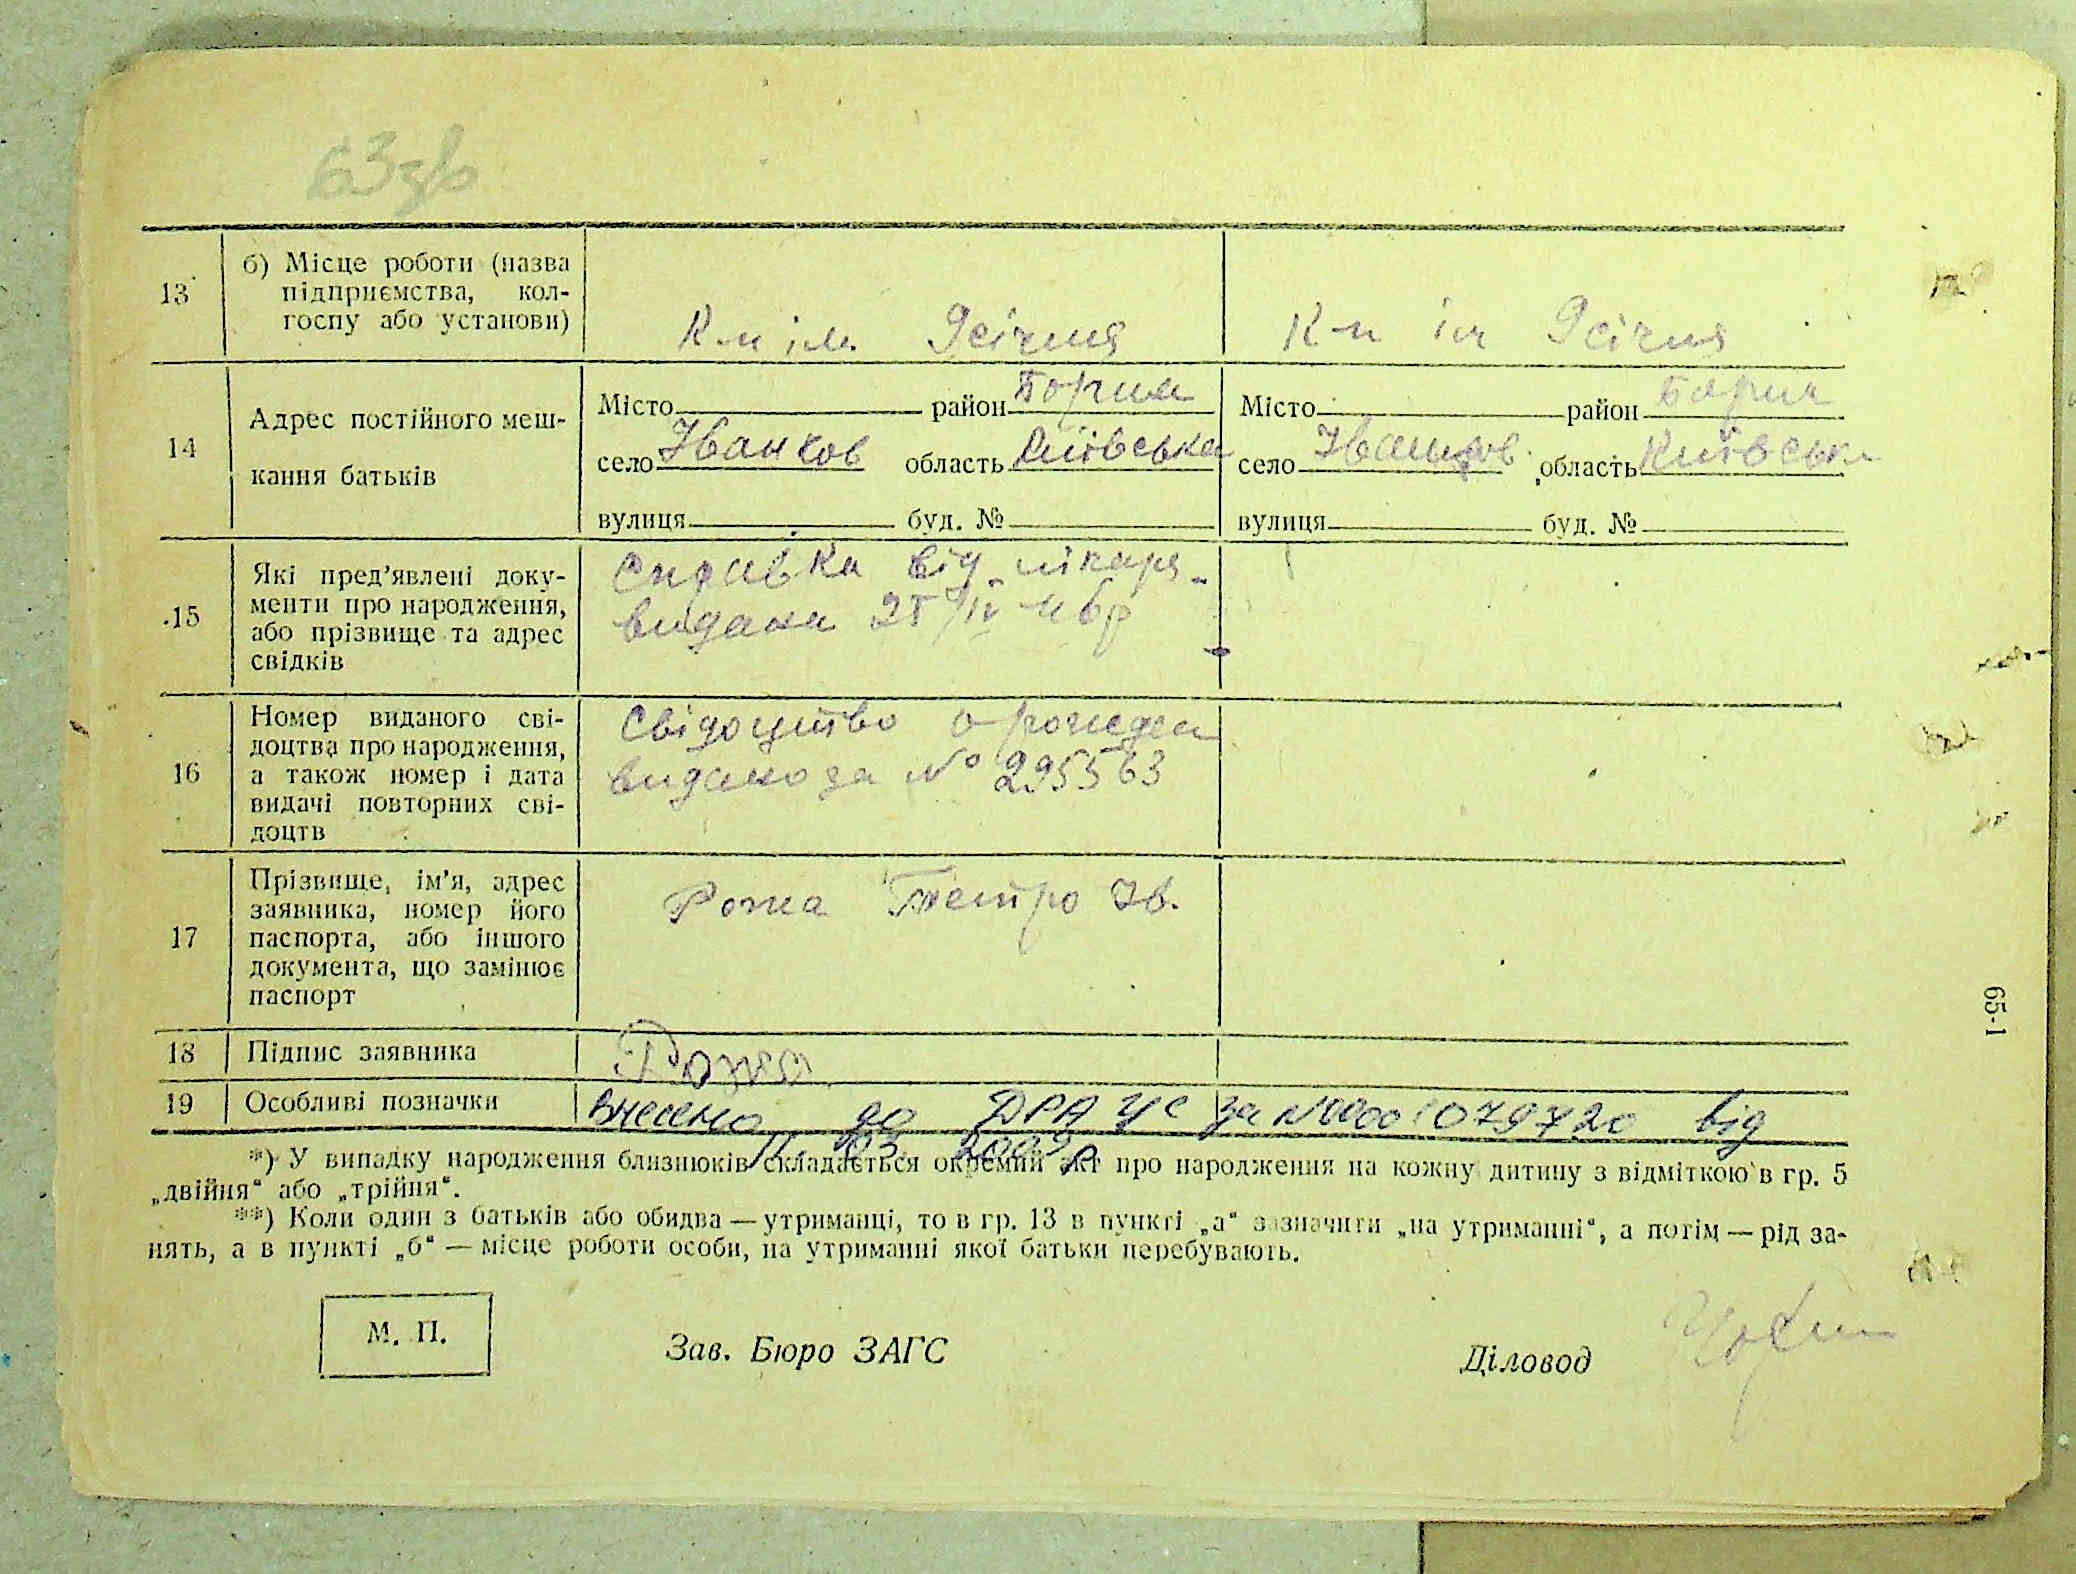 63 зв
13
б) Місце роботи (назва
підприємства, кол-
госпу або установи)
К-п ім. 9 січня
К-п ім 9 січня
14
Адрес постійного меш-
кання батьків
Місто район Борисп
село Іванков область Київська
вулиця буд. №
Місто район Борисп
село Іванков область Київськ
вулиця буд. №
15
Які пред’явлені доку-
менти про народження,
або прізвище та адрес
свідків
Справка від лікаря
видана 25/IV
16
Номер виданого сві-
доцтва про народження,
а також номер і дата
видачі повторних сві-
доцтв
Свідоцтво о рожден
видано за № 295563
17
Прізвище, ім’я, адрес
заявника, номер його
паспорта, або іншого
документа, що замінює
паспорт
Рожа Петро Ів.
18
Підпис заявника
Рожа
19
Особливі позначки
внесено до ДРАЦС за №00001079720 від
11.03.2009р
*) У випадку народження близнюків складається окремий акт про народження на кожну дитину з відміткою в гр. 5
„двійня“ або „трійня“.
**) Коли один з батьків або обидва — утриманці, то в гр. 13 в пункті „а“ зазначити „на утриманні“, а потім — рід за-
нять, а в пункті „б“ — місце роботи особи, на утриманні якої батьки перебувають.
М. П.
Зав. Бюро ЗАГС
Діловод
65-1